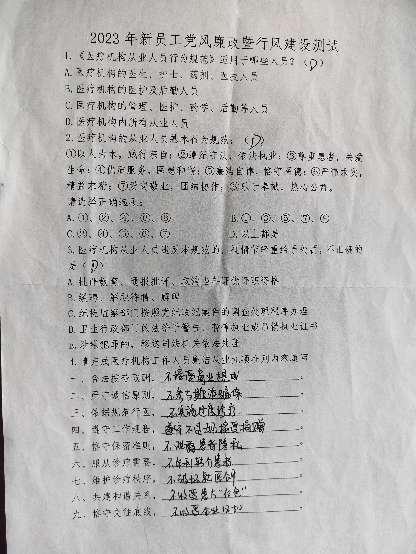 2023年新员工党风廉政暨行风建设测试
1.《医疗机构从业人员行为规范》适用于哪些人员？(D)
A.医疗机构的医生、护士、药剂、医技人员
B.医疗机构的医护及后勤人员
C.医疗机构的管理、医护、药学、后勤等人员
D.医疗机构内所有从业人员
2.医疗机构的从业人员基本行为规范：(D)
①以人为本，践行宗旨；②遵纪守法，依法执业；③尊重患者，关爱
生命；④优质服务，医患和谐；⑤廉洁自律，恪守医德；⑥严谨求实，
精益求精；⑦爱岗敬业，团结协作；⑧乐于奉献，热心公益。
请选择正确选项：
A.①、②、④、⑤、⑧
D.以上都是
3.医疗机构从业人员违反本规范的，视情节轻重给予处罚，不正确的
是(D)
A.批评教育、通报批评、取消当年评优评职资格
B.缓聘、解职待聘、解聘
C.纪检监察部门按照党纪政纪案件的调查处理程序办理
D.卫生行政部门依法给予警告、暂停执业或吊销执业证书
E.涉嫌犯罪的，移送司法机关依法处理
4.请完成医疗机构工作人员廉洁从业九项准则内容填写
一、合法按劳取酬，不接受商业提成。
二、严守诚信原则，不参与欺诈骗保。
三、依据规范行医，不实施过度诊疗。
四、遵守工作规程，违规接受捐赠。
五、恪守保密准则，不泄露患者隐私。
六、服从诊疗需要，不牟利转介患者。
七、维护诊疗秩序，不破坏就医公平。
八、共建和谐关系，不收受患方“红包”。
九、恪守交往底线，不收受企业回扣。